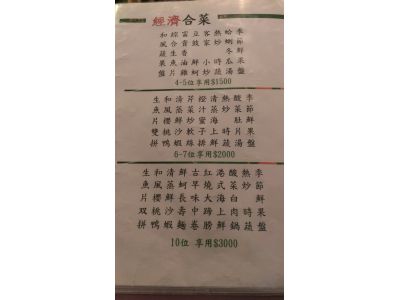 經濟合菜
和風蔬果盤
綜合生魚片
富貴香油雞
豆豉鮮蚵
客家小炒
熱炒時蔬
蛤蜊冬瓜湯
季節鮮果盤
4-5位享用$1500
生魚片雙拼
和風櫻桃鴨
清蒸鮮沙蝦
芹菜炒軟珠
橙汁蜜子排
清蒸海上鮮
熱炒時蔬
酸菜肚片湯
季節鮮果盤
6-7位享用$2000
生魚片双拼
和風櫻桃鴨
清蒸鮮沙蝦
鮮蚵長壽麵
古早味中卷
紅燒大蹄膀
港式海上鮮
酸菜白肉鍋
熱炒時蔬
季節鮮果盤
10位 享用$3000